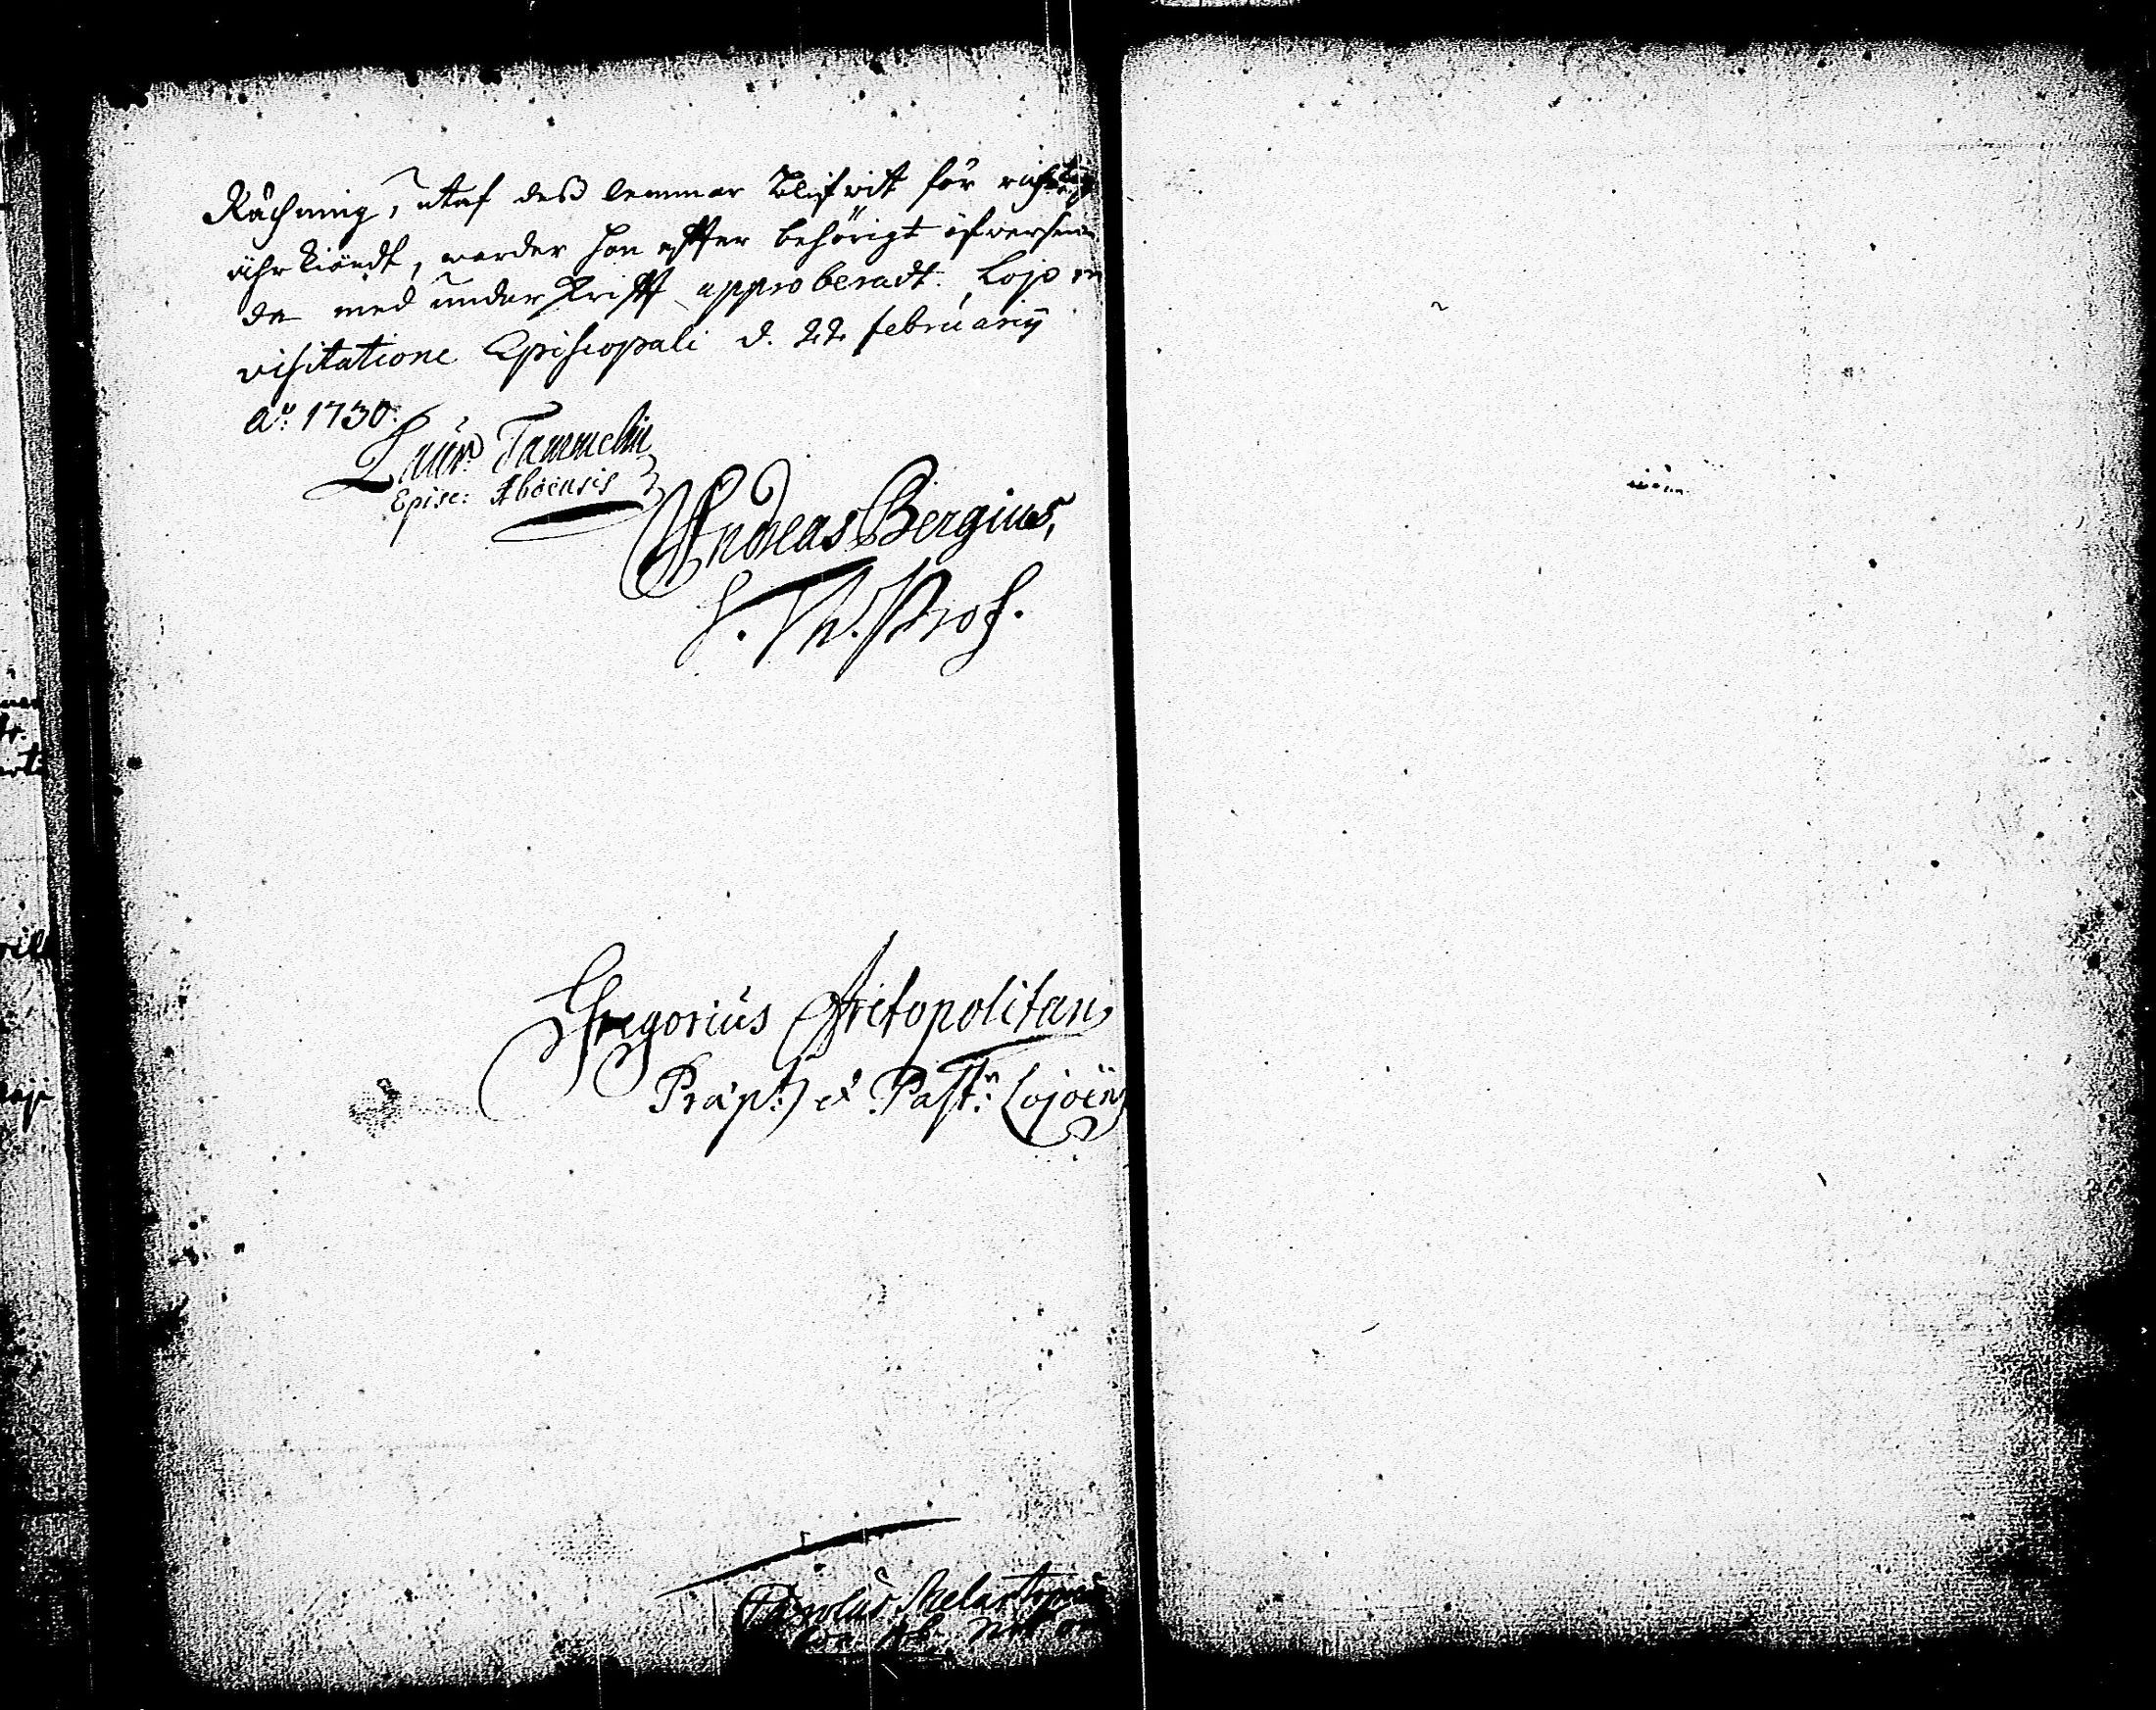 Räkning, utaf deß lemmar blifwit för richtig
ährkiändt, warder hon effter behörigt öfwerseen-
de med underskrifft approberadt. Lojo in
visitatione Episcopali d. 22 februarij
Ao: 1730.
Laur. Tammelin
Episc: Aboensis
Andreas Bergius,
S. Th. Prof.
Gregorius Arctopolitan
Præp: et Past: Lojoens
Carolus